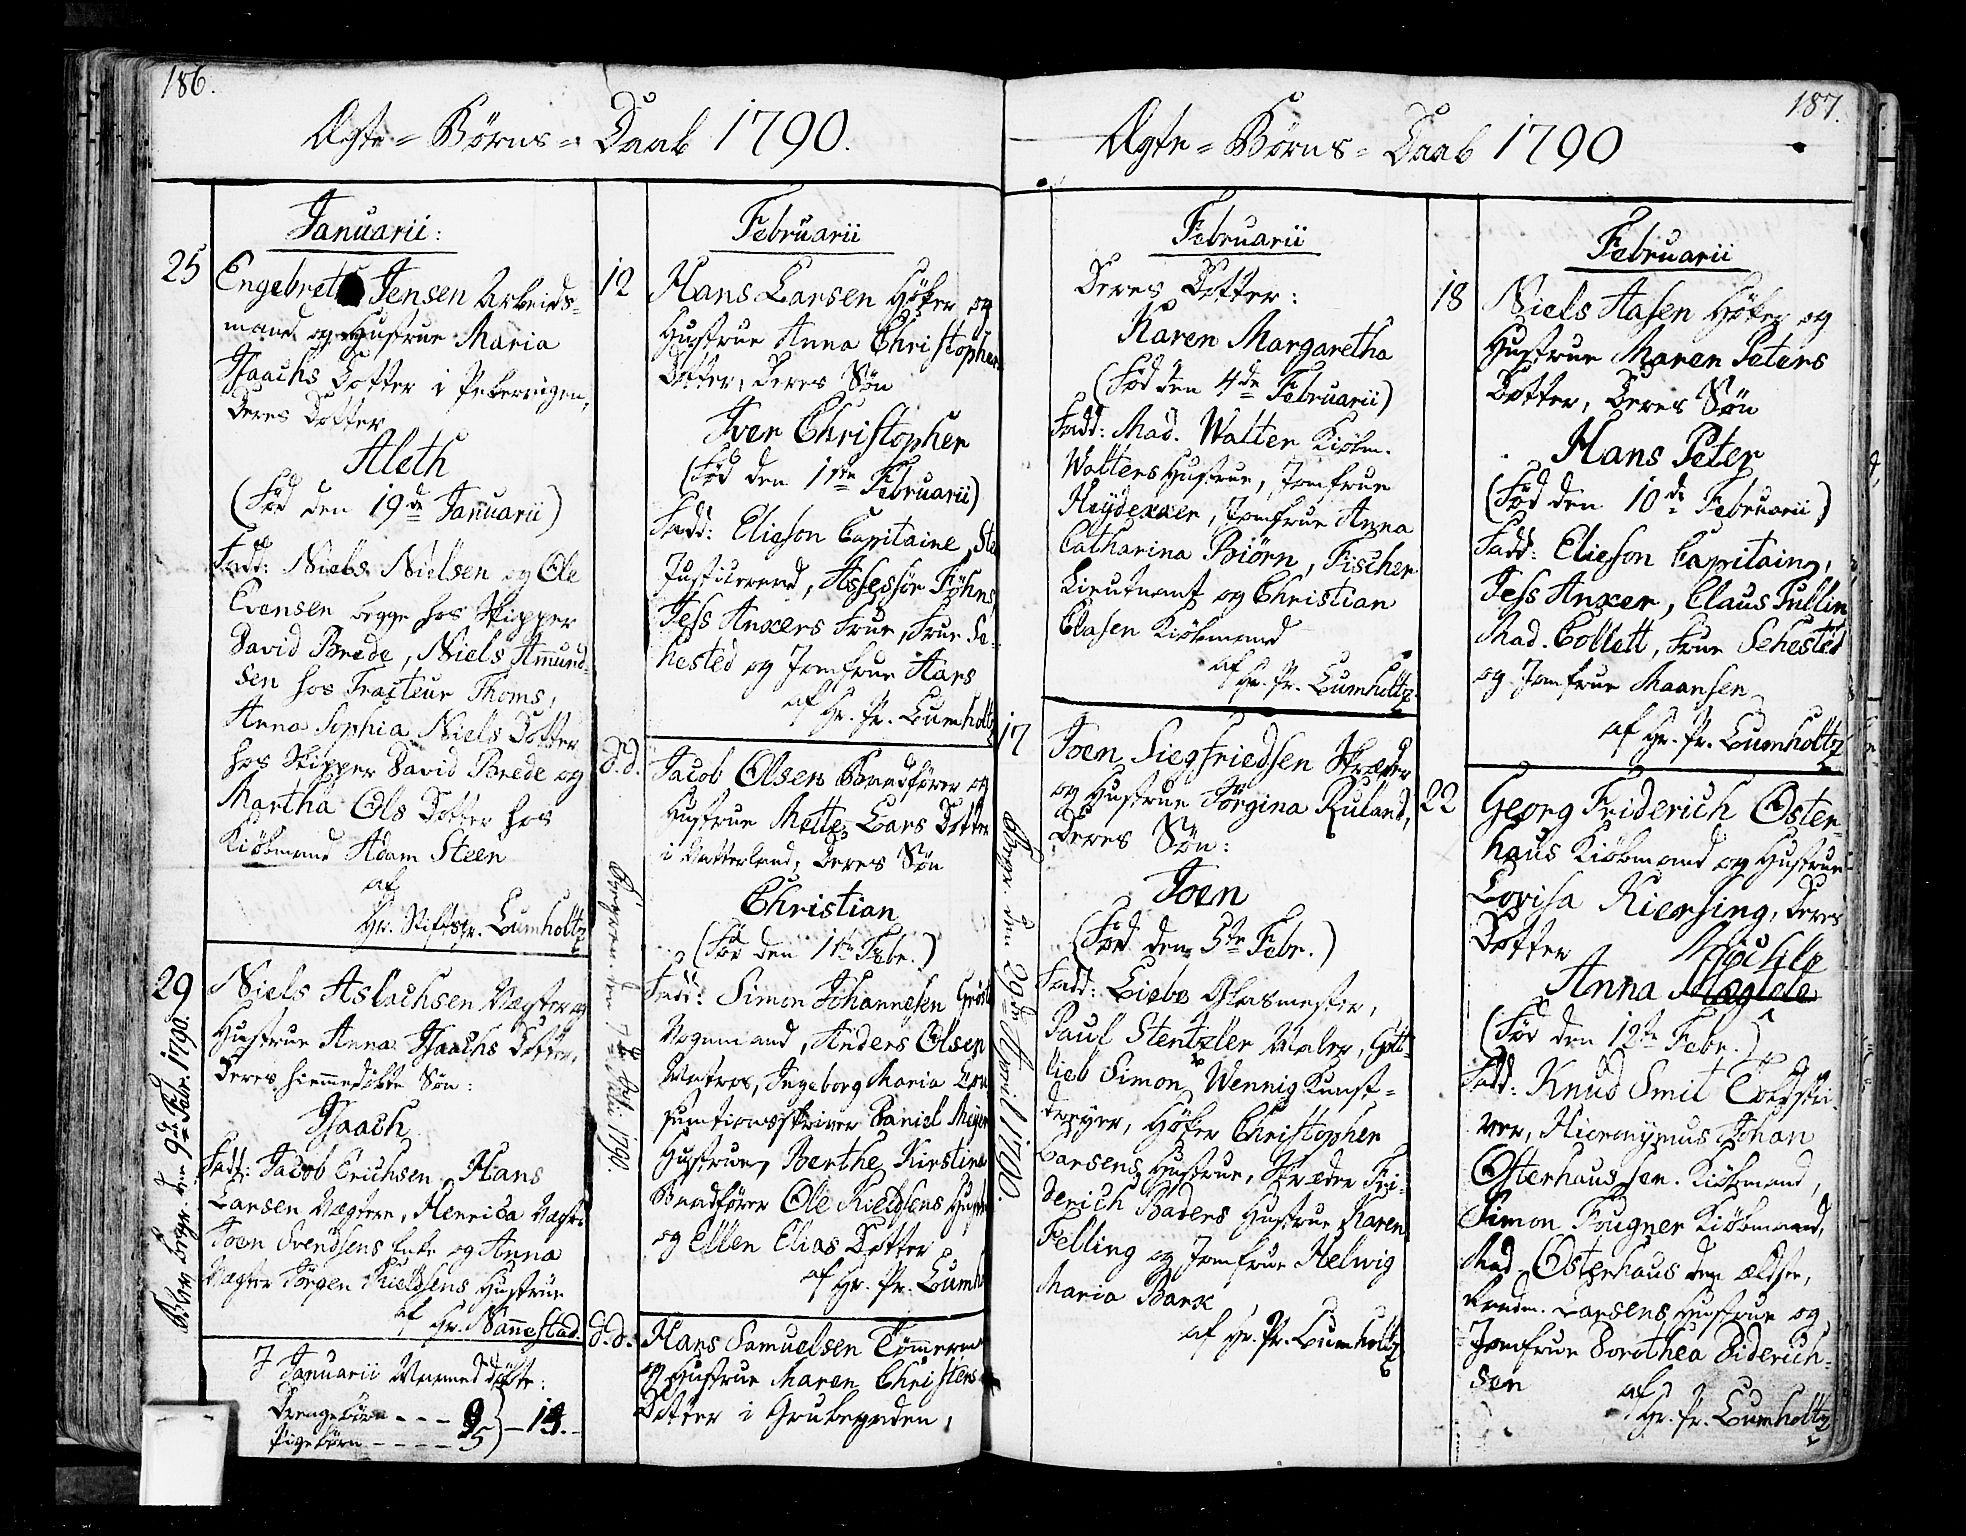 186.
Ægte = Börns = Daab 1790.
Januarii:
25
Engebret Jensen Arbeids-
mand og Hustrue Maria
Isaachs Dotter i Pebervigen,
Deres Dotter
Aleth
(Föd den 19de Januarii)
Fadd: Niels Nielsen og Ole
Evensen begge hos Skipper
David Brede, Niels Amund-
sen hos Tracteur Thoms,
Anna Sophia Niels Dotter
hos Skipper David Brede og
Martha Ols Dotter hos
Kiöbmand Adam Steen
af
Hr. Stiftspr. Lumholtz
29
Niels Aslachsen Vægter og
Hustrue Anna Isaachs Dotter,
Deres hiemmedöbte Sön:
Isaach
Fadd: Jacob Erichsen, Hans
Larsen Vægtere, Henrica Vægter
Joen Svendsens Enke og Anna
Vægter Jörgen Nielsens Hustrue
af Hr. Nannestad.
Blev begr. den 9de Febr. 1790.
I Januarii Maaned döbte:
Drengebörn - - - 9
Pigebörn - - - - 5
Februarii
12
Hans Larsen Höker og
Hustrue Anna Christopher
Dotter, Deres Sön
Iver Christopher
(Föd den 1ste Februarii)
Fadd: Elieson Capitaine,
Justitsraad, Assessor Föhns,
Jess Anxers Frue, Frue Se-
hested og Jomfrue Aars
af Hr. Pr. Lumholtz
d.d.
Jacob Olsen Baadförer og
Hustrue Mette Lars Dotter
i Vatterland, Deres Sön
Christian
(Föd den 1ste Febr.)
Fadd: Simon Johannesen
Vognmand, Anders Olsen
Matros, Ingeborg Maria Con
sumtionsskriver Daniel Meyer
Hustrue, Berthe Kirstine
Baadförer Ole Kieldsens Hustrue
og Ellen Elias Dotter
af Hr. Pr. Lumh
d.d.
Hans Samuelsen Tömmerm
og Hustrue Maren Christens
Dotter i Grubegaden,
187.
Ægte = Börns = Daab 1790
Februarii
Deres Dotter:
Karen Margaretha
(Föd den 4de Februarii)
Fadd: Mad. Walter Kiöbm.
Walters Hustrue, Jomfrue
Heydexxer, Jomfrue Anna
Catharina Biörn, Fischer
Lieutnant og Christian
Clasen Kiöbmand
af Hr. Pr. Lumholtz
17
Joen Siegfriedsen Skræder
og Hustrue Jörgina Ruland,
Deres Sön:
Joen
(Föd den 5te Febr.)
Fadd: Liebe Glasmester,
Paul Stentzler Maler, Gott-
lieb Simon Wennig Kunst-
dreyer, Höker Christopher
Larsens Hustrue, Skræder Fri-
derich Baders Hustrue Karen
Felling og Jomfrue Helwig
Maria Barx
af Hr. Pr. Lumholtz
den 29de April 1790.
Februarii
18
Niels Aasen Höker og
Hustrue Maren Peters
Dotter, Deres Sön
Hans Peter
(Föd den 10de Februarii)
Fadd: Elieson Capitain,
Jess Anxer, Claus Tullin
Mad. Collett, Frue Sehested
og Jomfrue Maansen
af Hr. Pr. Lumholtz
22
Georg Friderich Oster-
haus Kiöbmand og Hustrue
Lovisa Kiersing, Deres
Dotter
Anna
(Föd den 12te Febr.)
Fadd: Knud Smit Toldskri-
ver, Hieronymus Johan
Osterhaus sen. Kiöbmand,
Simon Fougner Kiöbmand,
Mad. Osterhaus den ældre,
Larsens Hustrue og
Jomfrue Dorothea Diderich-
sen
af
Hr. Pr. Lumholtz